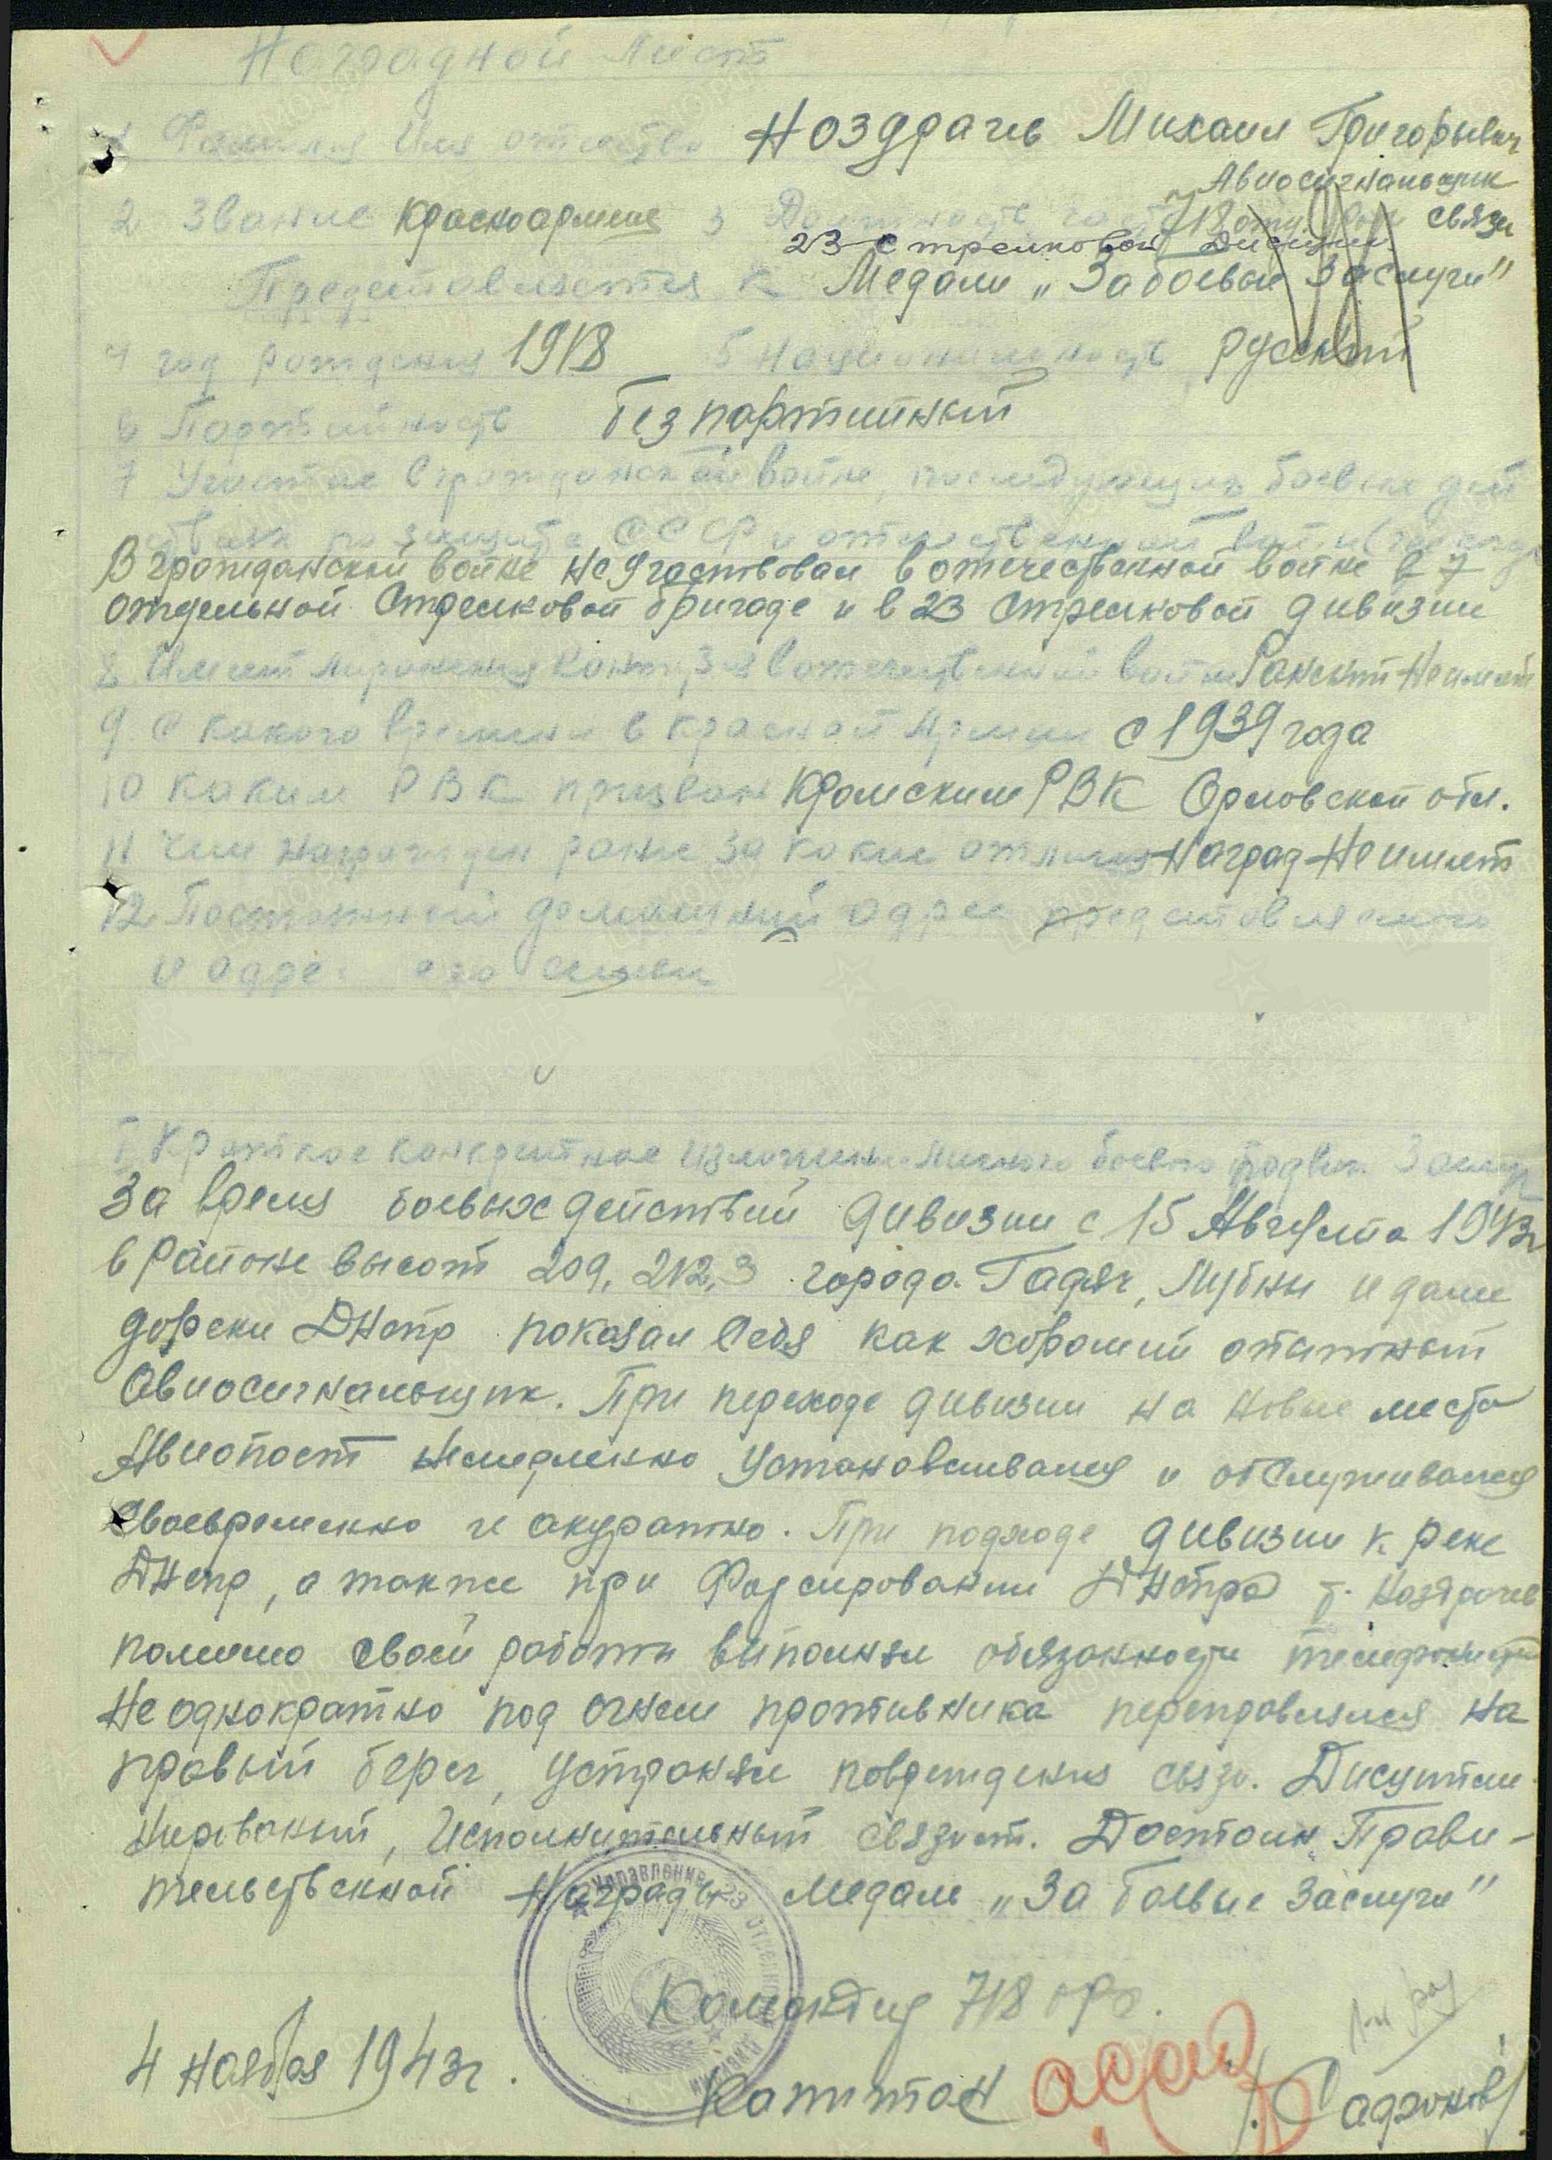 Наградной Лист
1 Фамилия Имя отчество Ноздрачев Михаил Григорьевич
Авиосигнальщик
2 Звание Красноармеец 3 Должность часть 718 отд. роты связи
23 Стрелковой Дивизии
Представляется к Медали „За боевые Заслуги"
4 год рождения 1918 5 Национальность русский
6 Партийность Безпартийный
7 Участие в гражданской войне, последующих боевых дей
ствиях по защите СССР и отечественной войне
В гражданской войне не участвовал в отечественной войне в 7
отдельной Стрелковой бригаде и в 23 Стрелковой дивизии
8 Имеет ли ранения контузия в отечественной войне Ранений Не имеет
9 С какого времени в красной Армии с 1939 года
10 Каким РВК призван Кромским РВК Орловской обл.
11 Чем награжден ранее за какие отличия Наград Не имеет
12 Постоянный домашний адрес представляемого
и адрес его семьи
I Краткое конкретное изложение личного боевого подвига
За время боевых действий дивизии с 15 Августа 1943г
в районе высот 209, 212,3 города Гадяч, Лубны и далее
до реки Днепр показал себя как хороший опытный
Авиосигнальщик. При переходе дивизии на новые места
Авиопост немедленно устанавливался и обслуживался
своевременно и акуратно. При подходе дивизии к реке
Днепр, а также при Форсировании Днепра т. Ноздрачев
помимо своей работы выполнял обязанности телефониста
Не однократно под огнем противника переправлялся на
правый берег, устранял повреждения связи. Дисципли
нированый, Исполнительный связист. Достоин Прави-
тельственной Награды медаль „За Боевые Заслуги"
Управление 23 стрелковой дивизии
Командир 718 орс.
4 ноября 1943г.
Капитан